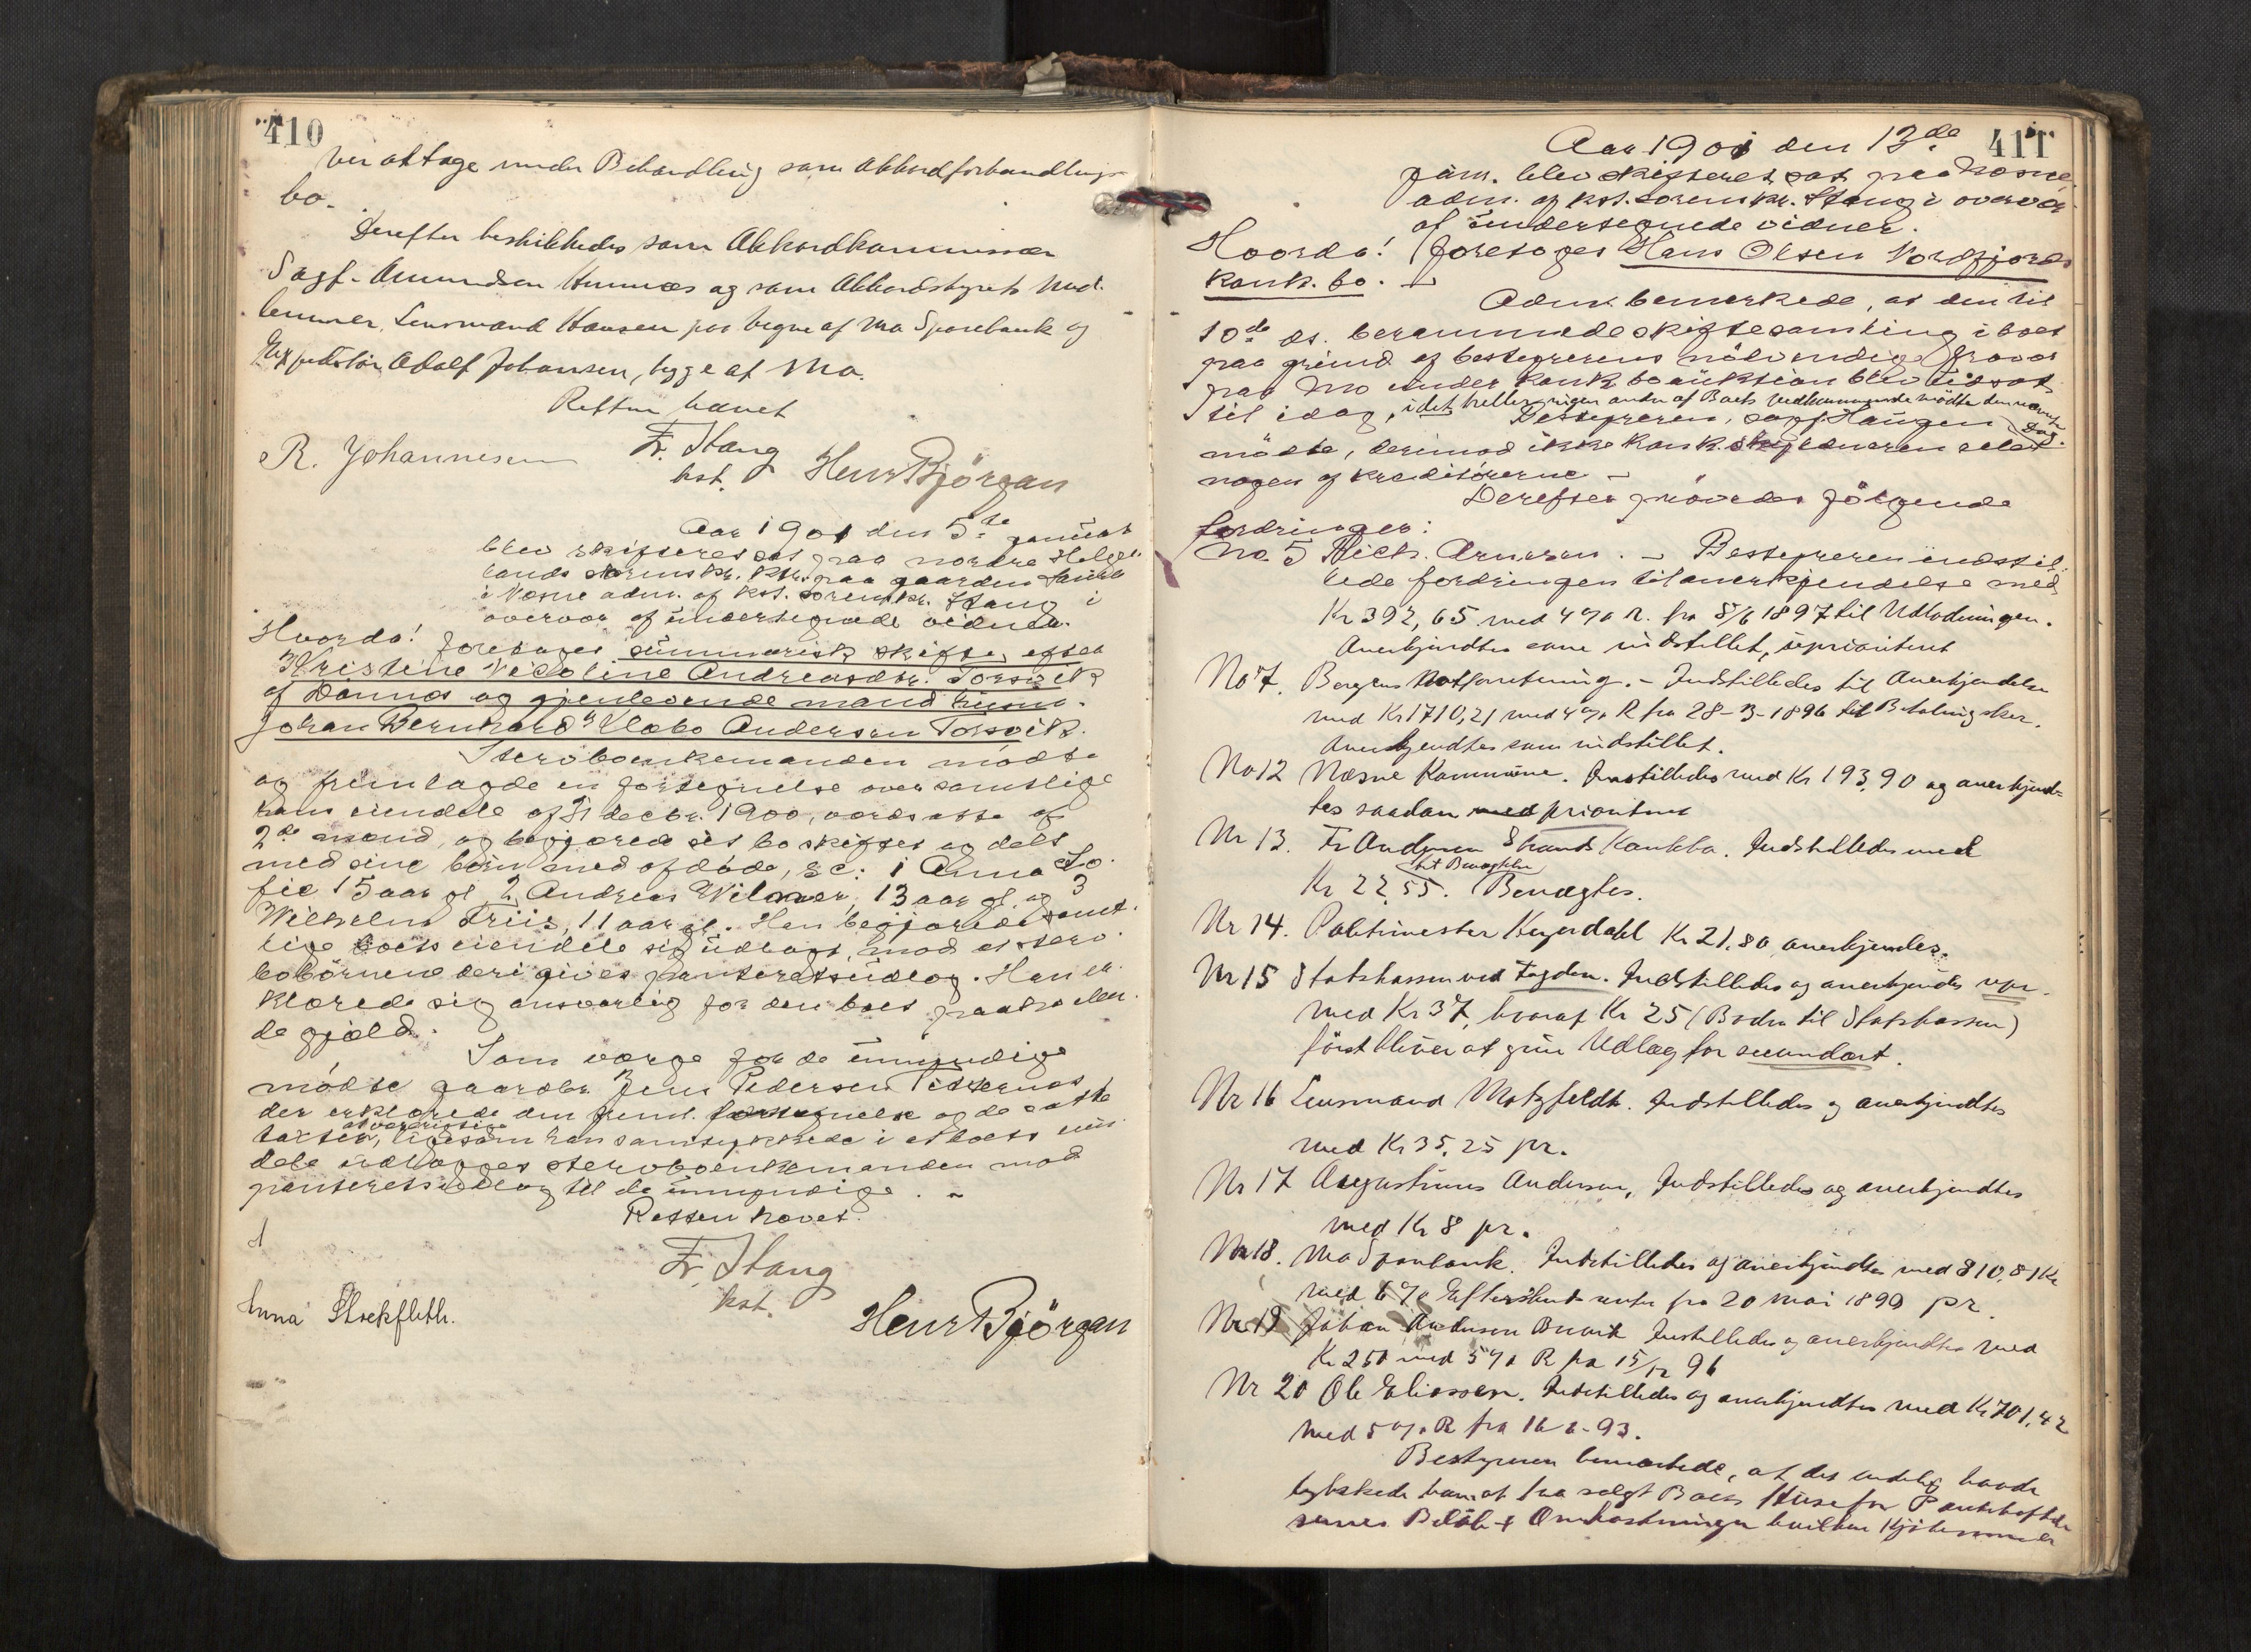 410
ver at tage under Behandling som Akkordforhandlings
bo.
Derefter beskikkedes som Akkordkommissær
Sagf. Amundsen Hemnæs og som Akkordstyrets Med-
lemmer, Lensmand Hansen paa vegne af Mo Sparebank og
Expeditør Adolf Johansen, begge af Mo.
Retten hævet
R. Johannesen Fr. Stang Henr Bjørgan
kst.
Aar 1901 den 5te januar
blev skifteret sat paa nordre Helge-
lands sorenskr. ktr. paa gaarden
i Næsne adm. af kst. sorenskr. Stang i
overvær af undertegnede vidner.
Hvorda! foretoges summarisk skifte efter
Kristine Nicoline Andreasdtr. Torsvik
af Dønnes og gjenlevende mand
Johan Bernhard Klæbo Andersen Torsvik.
Stervboenkemanden mødte
og fremlagde en fortegnelse over samtlige
hans eiendele af 31 decbr. 1900, værdsatte af
2de mænd, og begjærede sit bo skiftet og delt
med sine børn med afdøde, sc: 1 Anna So-
fie 15 aar gl, 2 Andreas Wilmer, 13 aar gl. og 3
Wilhelm Friis, 11 aar gl. Han begjærede samt-
lige boets eiendele sig udlagt, mod at sterv-
bobørnene deri gives panteretsudlæg. Han er-
klærede sig ansvarlig for den boet paahvilen-
de gjæld.
Som værge for de umyndige
mødte gaardbr. Jens Pedersen
der erklærede den freml. fortegnelse og de satte
takster, at være rigtige ligesom han samtykkede i at boets eien-
dele udlægges stervboenkemanden mod
panteretsudlæg til de umyndige. -
Retten hævet.
Fr. Stang
kst.
Anna Stockfleth. Henr Bjørgan
411
Aar 1901 den 13de
jan. blev skifteret sat paa Næsne
adm. af kst. sorenskr. Stang i overvær
af undertegnede vidner.
Hvorda! foretoges Hans Olsen Nordfjords
konk. bo. -
Adm. bemerkede, at den til
10de ds. berammede skiftesamling i boet
paa grund af bestyrerens nødvendige fravær
paa Mo under konk. boauktion blev udsat
til idag, idet heller ingen anden af Boets Vedkommende mødte den nævnte Dag.
Bestyreren, sagf. Haugen
mødte, derimod ikke konk. skyldneren eller
nogen af kreditorerne -
Derefter prøvedes følgende
fordringer:
No 5 Mich. Arnesen. - Bestyreren indstil-
lede fordringen til anerkjendelse med
Kr 392,65 med 4 % R. fra 5/6 1897 til Udlodningen.
Anerkjendtes som indstillet, uprioriteret
No 7. Bergens Notforretning. - Indstilledes til Anerkjendelse
med Kr 1710,21 med 4 % R fra 28-3-1896 til Betaling sker.
Anerkjendtes som indstillet.
No 12 Næsne Kommune. Indstilledes med Kr 193,90 og anerkjend-
tes saadan med prioritet
Nr 13. Fr Andersen Strands Konkbo. Indstilledes med
Kr 22,55. til Benægtelse Benægtes.
Nr 14. Politimester Kr 21.80 anerkjendes.
Nr 15 Statskassen ved Fogden. Indstilledes og anerkjendes upr.
med Kr 37, hvoraf Kr 25 (Bøder til Statskassen)
først bliver at give Udlæg for secundært.
Nr 16 Lensmand Motzfeldt. Indstilledes og anerkjendtes
med Kr 35,25 pr.
Nr 17 Augustinus Andersen, Indstilledes og anerkjendtes
med Kr 8 pr.
Nr 18. Mo Sparebank. Indstilledes og anerkjendtes med 810,81 Kr
med 6 % Efterskudsrente fra 20 Mai 1899 pr.
Nr 19 Johan Andersen Indstilledes og anerkjendtes med
Kr 250 med 5 % R fra 15/12 96
Nr 20 Ole Eliassen. Indstilledes og anerkjendtes med Kr 701,42
med 5 % R fra 16-6-93.
Bestyreren bemærkede, at det endelig havde
lykkedes ham at faa solgt Boets Huse for Pantehefte
Beløb + Omkostninger hvilken Kjøbesum er